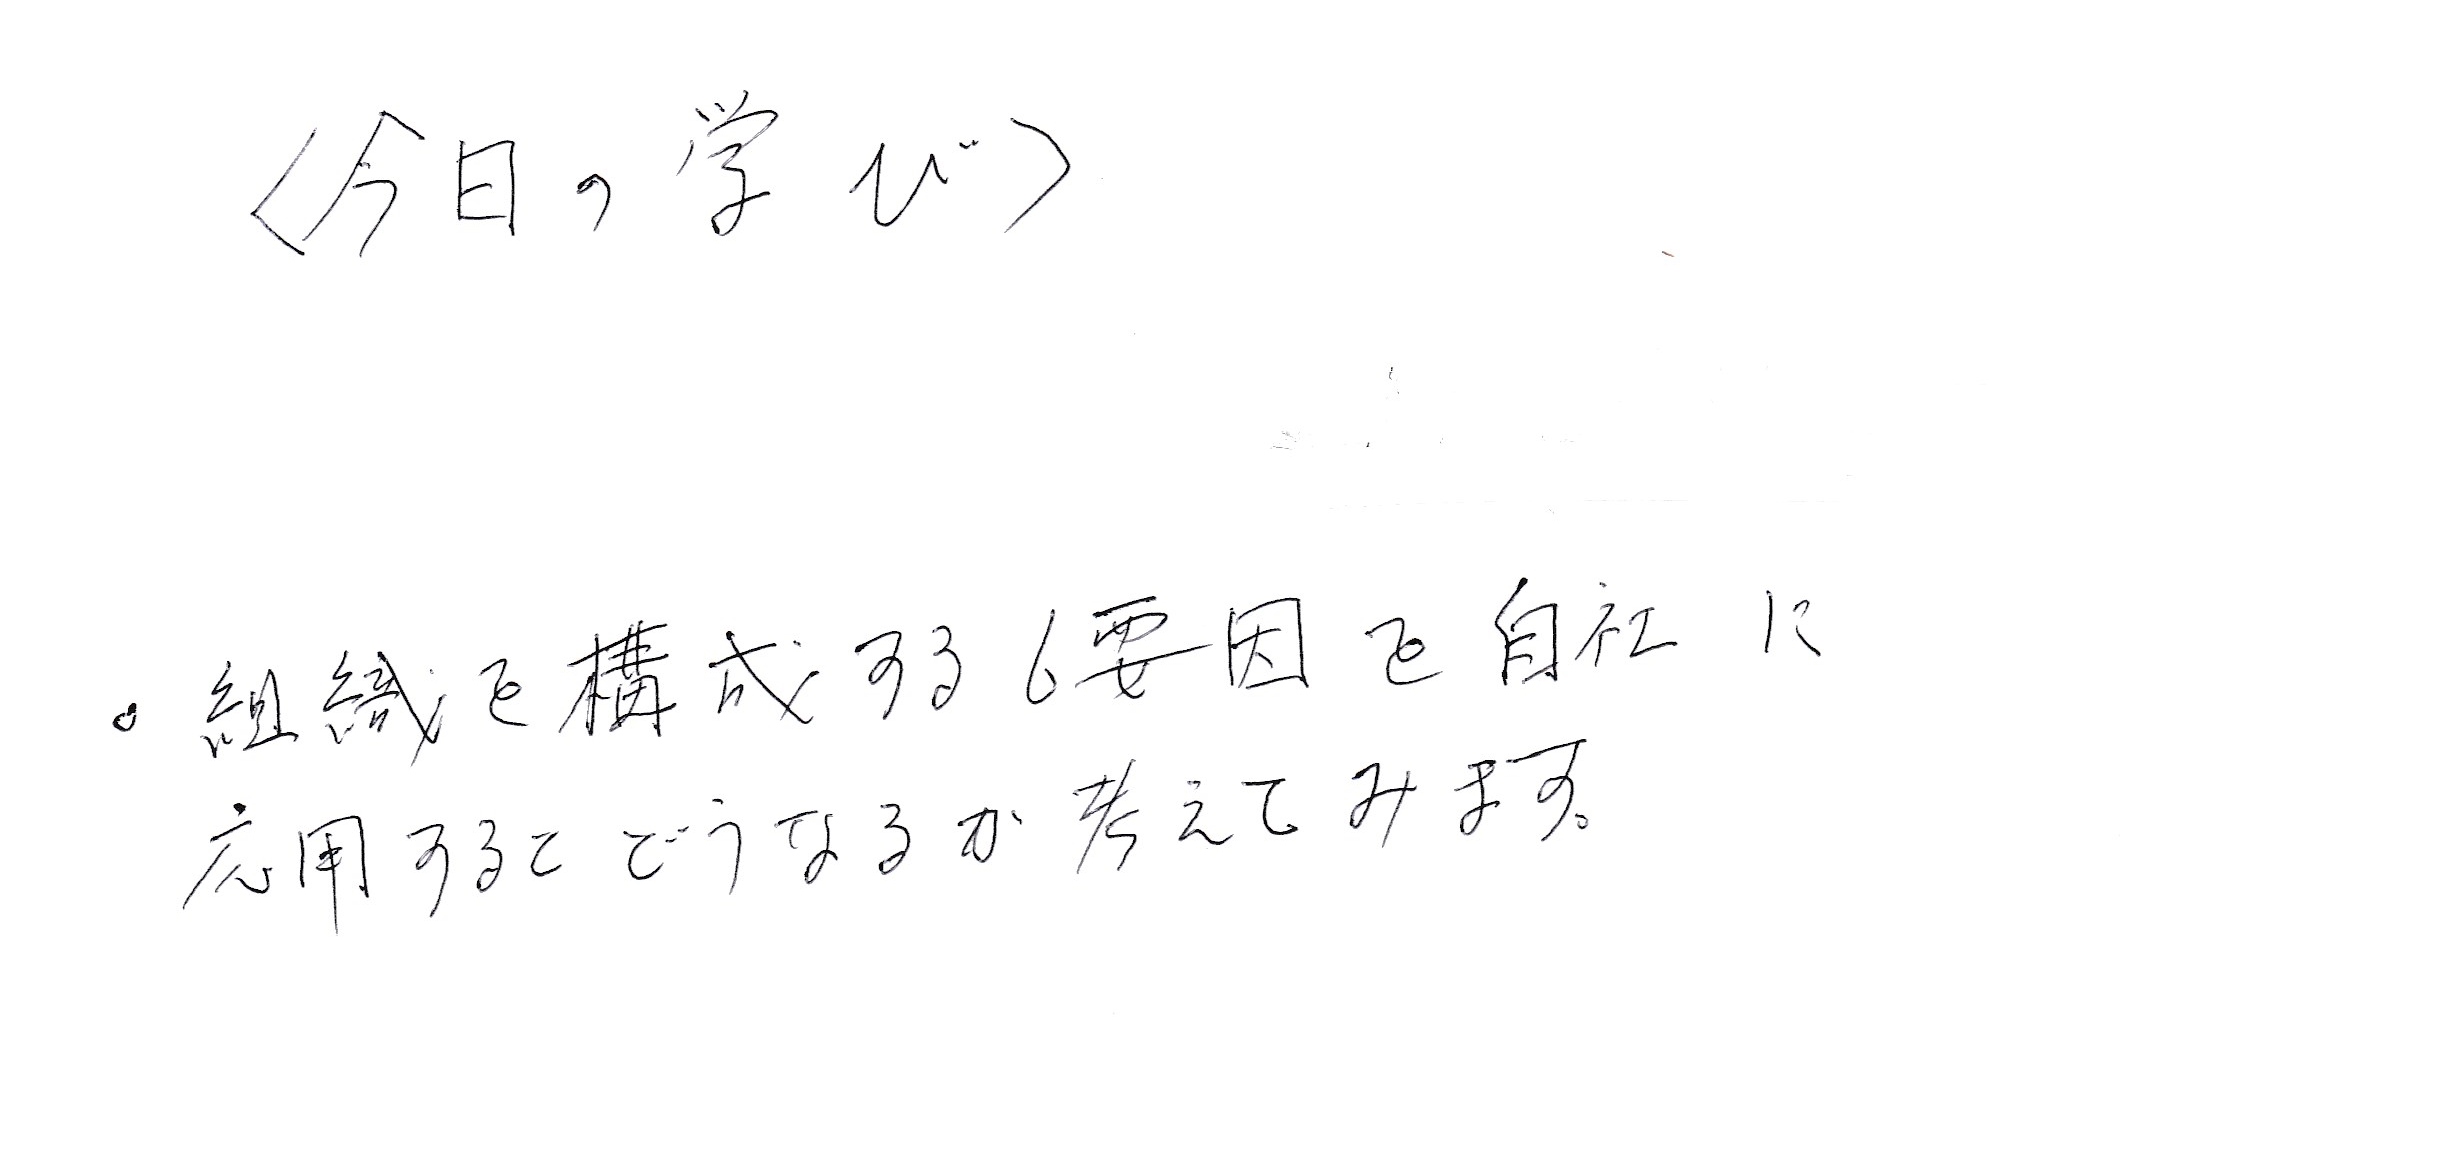 〈今日の学び〉
• 組織を構成する6要因を自社に
応用するとどうなるか考えてみます。